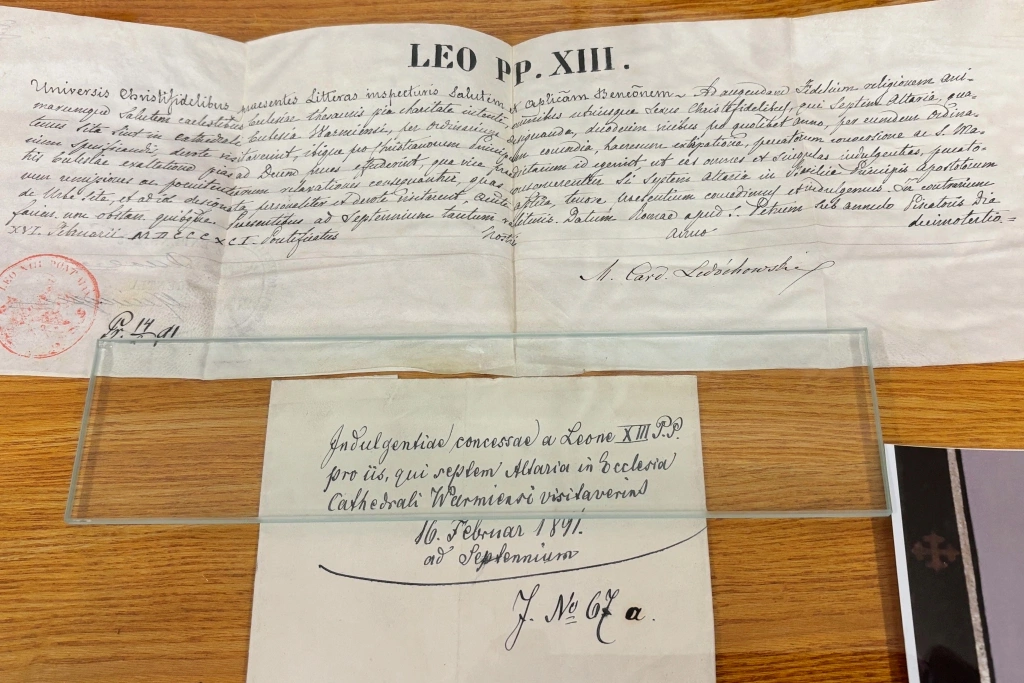 LEO PP. XIII.
Universis Christifidelibus praesentes Litteras inspecturis Salutem et Aplicam Benonem. Ad augendam Fidelium religionem ani-
marumque Salutem caelestibus Ecclesiae thesauris pia charitate intenti omnibus utriusque Sexus Christifidelibus, qui Septem Altaria, qua-
tenus sita sint in cathedrali Ecclesia Warmiensi, per Ordinarium designanda, duodecim vicibus pro quolibet anno, per eumdem Ordina-
rium specificandi devote visitaverint, ibique pro Christianorum Principum concordia, haeresum extirpatione, peccatorum conversione ac S. Ma-
tris Ecclesiae exaltatione pias ad Deum preces effuderint, qua vice
num remissiones ac poenitentiarum relaxationes consequantur, quas consequerentur Si Septem Altaria in Basilica Principis Apostolorum
de Urbe sita, et ad id designata personaliter et devote visitarent, auctoritate Aplica, tenore praesentium concedimus et indulgemus. In contrarium
facien. non obstan. quibusque. Praesentibus ad Septennium tantum valituris. Datum Romae apud S. Petrum sub annulo Piscatoris Die
XVI Februarii MDCCCXCI. Pontificatus Nostri anno decimotertio
M. Card. Ledóchowski
LEO XIII PONT
Pr. 14 91
Indulgentiae concessae a Leone XIII P.P.
pro iis, qui septem Altaria in Ecclesia
Cathedrali Warmiensi visitaverint
16. Februar 1891.
ad Septennium
J. No 67 a.